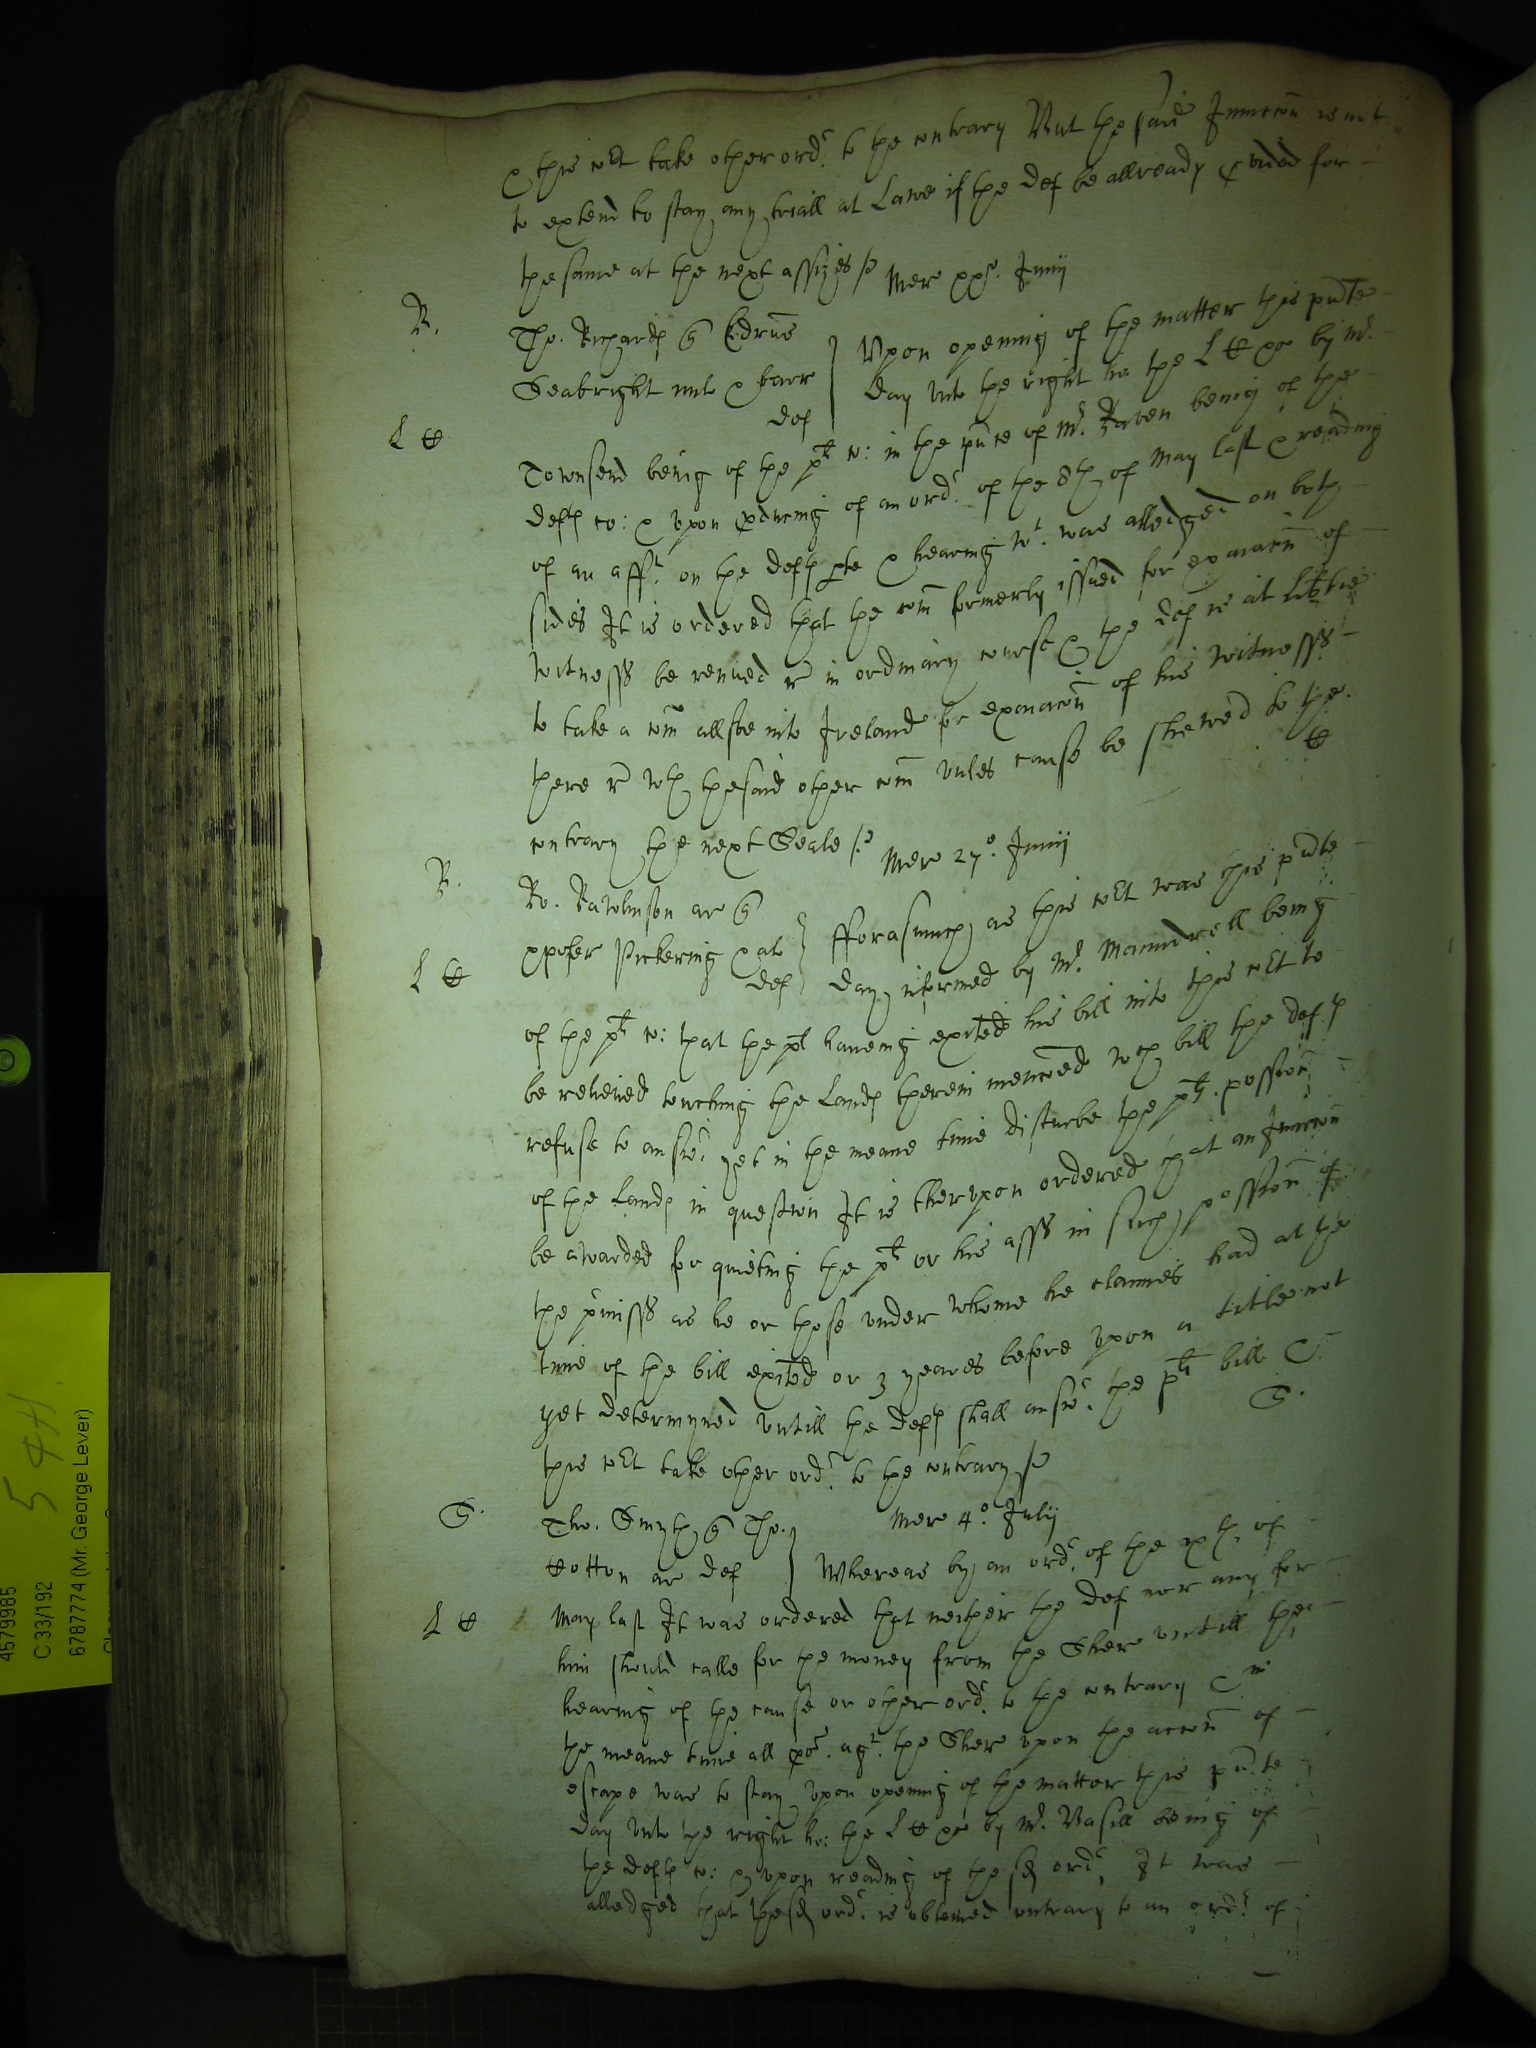 & this co^rt take other ord^r. to the contrary But the said Inunccon is not
to extend to stay any triall at Lawe if the def be allready p'vided for
the same at the next assizes /.
Mer^c xx^o. Junij
R.
Tho. Richard
Seabright mil & barr
def
L C
Vpon opening of the matter this p^rnte
day vnto the right ho: the L C by M^r.
Townsend being of the p^lts co: in the p^rnce of M^r. being of the
def^ts co: & vpon p'ducing of an ord^r. of the 8^th of May last & reading
of an aff^t. on the def^ts p^te & hearing w^t. was alledged on both
sides It is ordered that the com formerly issued for exaiacon of
witnesses be renued r^e in ordinary course & the def is at lib^tie
to take a com allsoe into Ireland for exaiacon of his witnesses
there r^e w^th the said other com vnles cause be shewed to the
contrary the next Seale /.
C
Mer^c 27^o. Junij
R.
Ro. Rawlinson ar
xpofer Pickering & al
def
L C
fforasmuch as this co^rt was this p^rnte
day informed by M^r. Maundrell being
of the p^lts co: that the p^lt haueing exi^ted his bill into this co^rt to
be releiued touching the Lands therein menconed w^ch bill the def^ts
refuse to answ^r. yet in the meane time disturbe the p^lts. possion
of the Lands in question It is thervpon ordered that an Inunccon
be awarded for quieting the p^lt or his ass in such possion of
the p^rmisses as he or those vnder whome he claimes had at the
time of the bill exi^ted or 3 yeares before vpon a title not
yet determyned vntill the def^ts shall answ^r. the p^lts bill &
this co^rt take other ord^r. to the contrary /.
S.
Mer^c 4^o. Julij
S.
Tho. Smyth Tho.
Cotton ar def
L C
Whereas by an ord^r. of the x^th. of
May last It was ordered that neither the def nor any for
him should calle for the money from the Sher^e vntill the
hearing of the cause or other ord^r. to the contrary & in
the meane time all p'c. ag^t. the Sher^e vpon the accon of
escape was to stay vpon opening of the matter this p^rnte
day vnto the right ho: the L C by M^r. Vasill being of
the def^ts co: & vpon reading of the s^d ord^r. It was
alledged that the s^d ord^r. is obteined contrary to an ord^r. of
4579985
C 33/192
6787774 (Mr. George Lever)